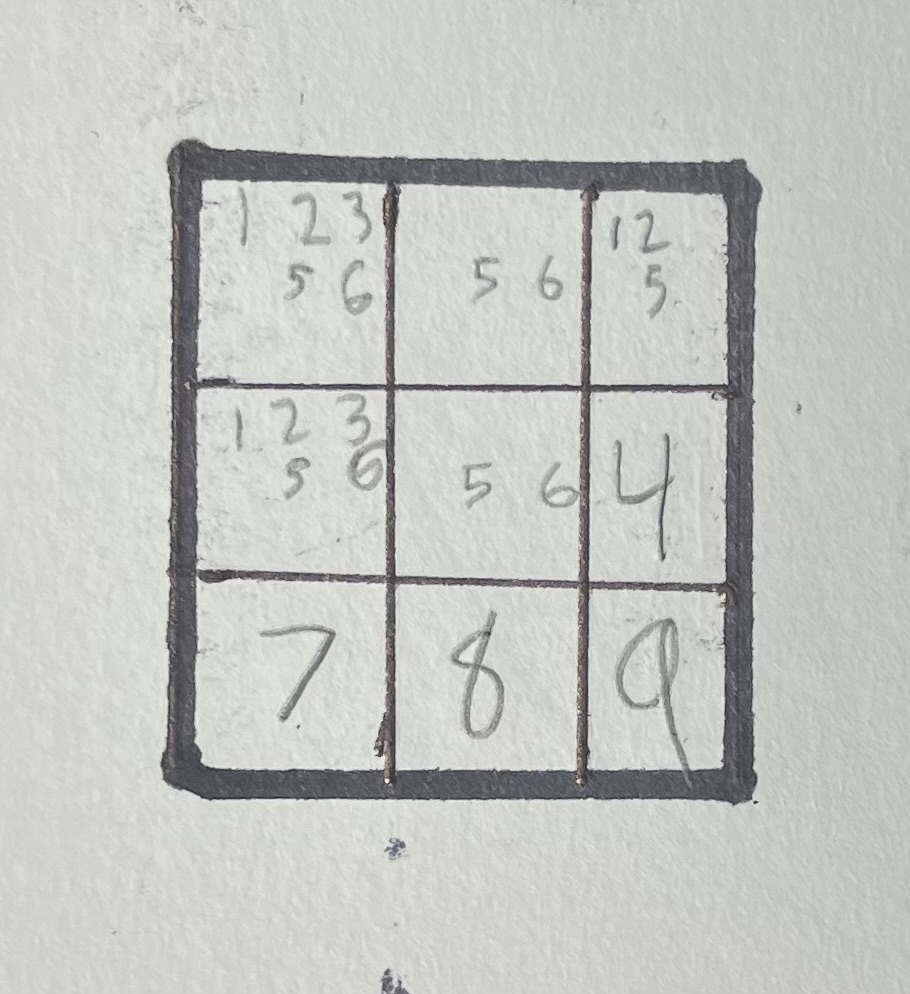 1 2 3 5 6 12
5 6 5
1 2 3
5 6 5 6 4
7 8 9